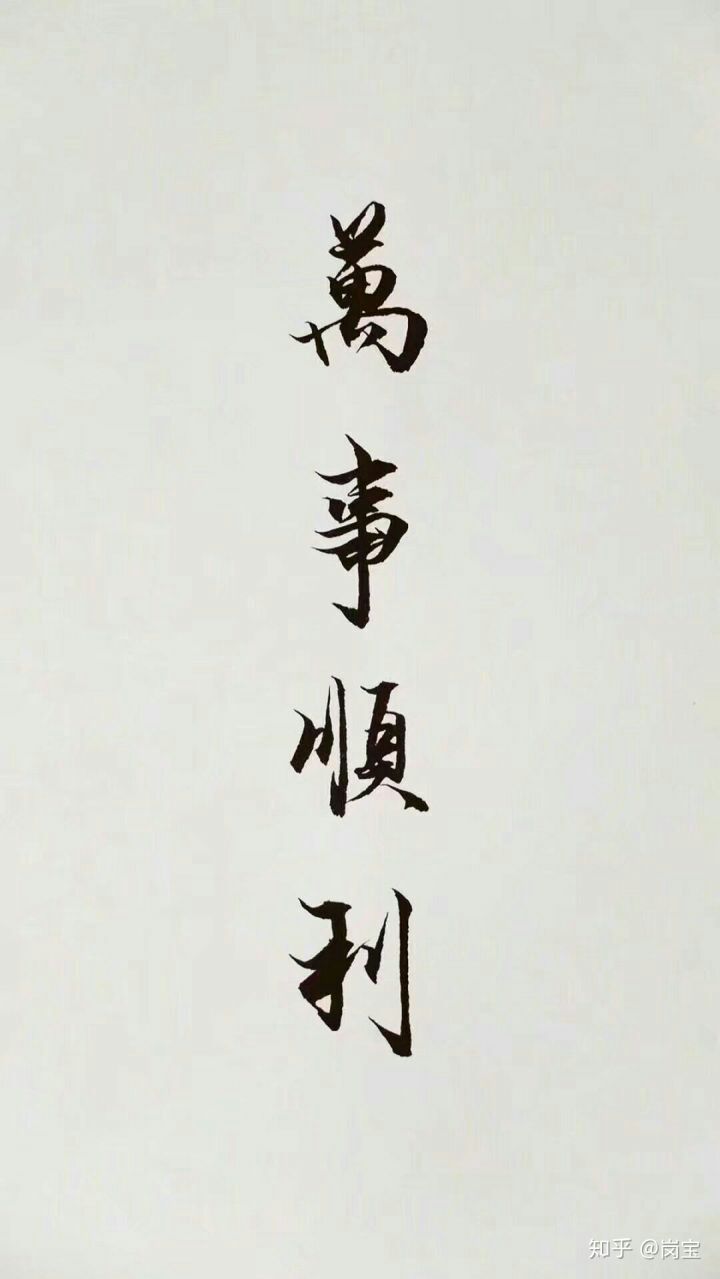 萬事順利
知乎 @岗宝